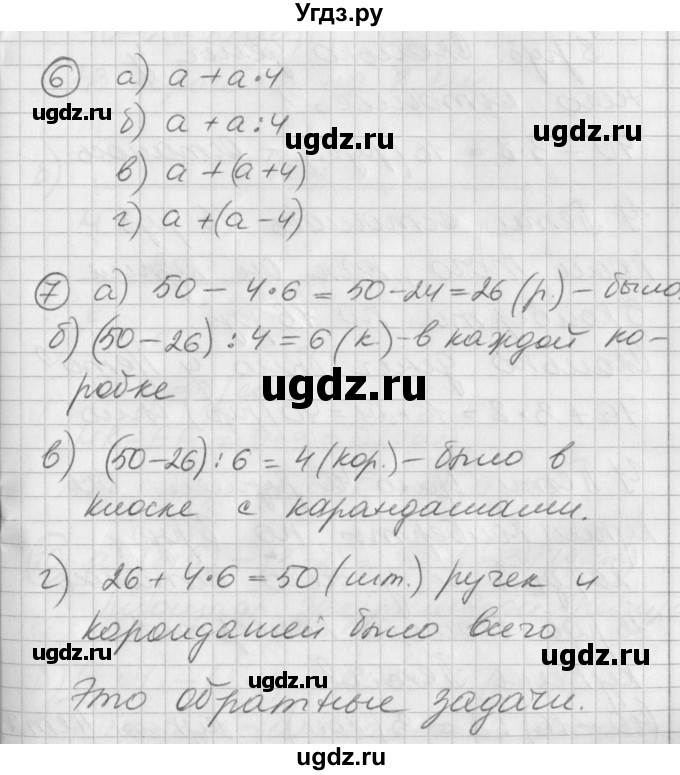 Угдз.ру
6 а) а + а·4
ugdz.ru
б) а + а:4
ugdz.ru
ugdz.ru
в) а + (а+4)
г) а + (а-4)
7 а) 50 - 4·6 = 50-24 = 26 (р.) - было.
б) (50-26) : 4 = 6 (к) - в каждой ко-
ugdz.ru
робке
в) (50-26) : 6 = 4 (кор.) - было в
киоске с карандашами.
г) 26 + 4·6 = 50 (шт.) ручек и
карандашей было всего
ugdz.ru
ugdz.ru
ugdz.ru
Это обратные задачи.
ugdz.ru